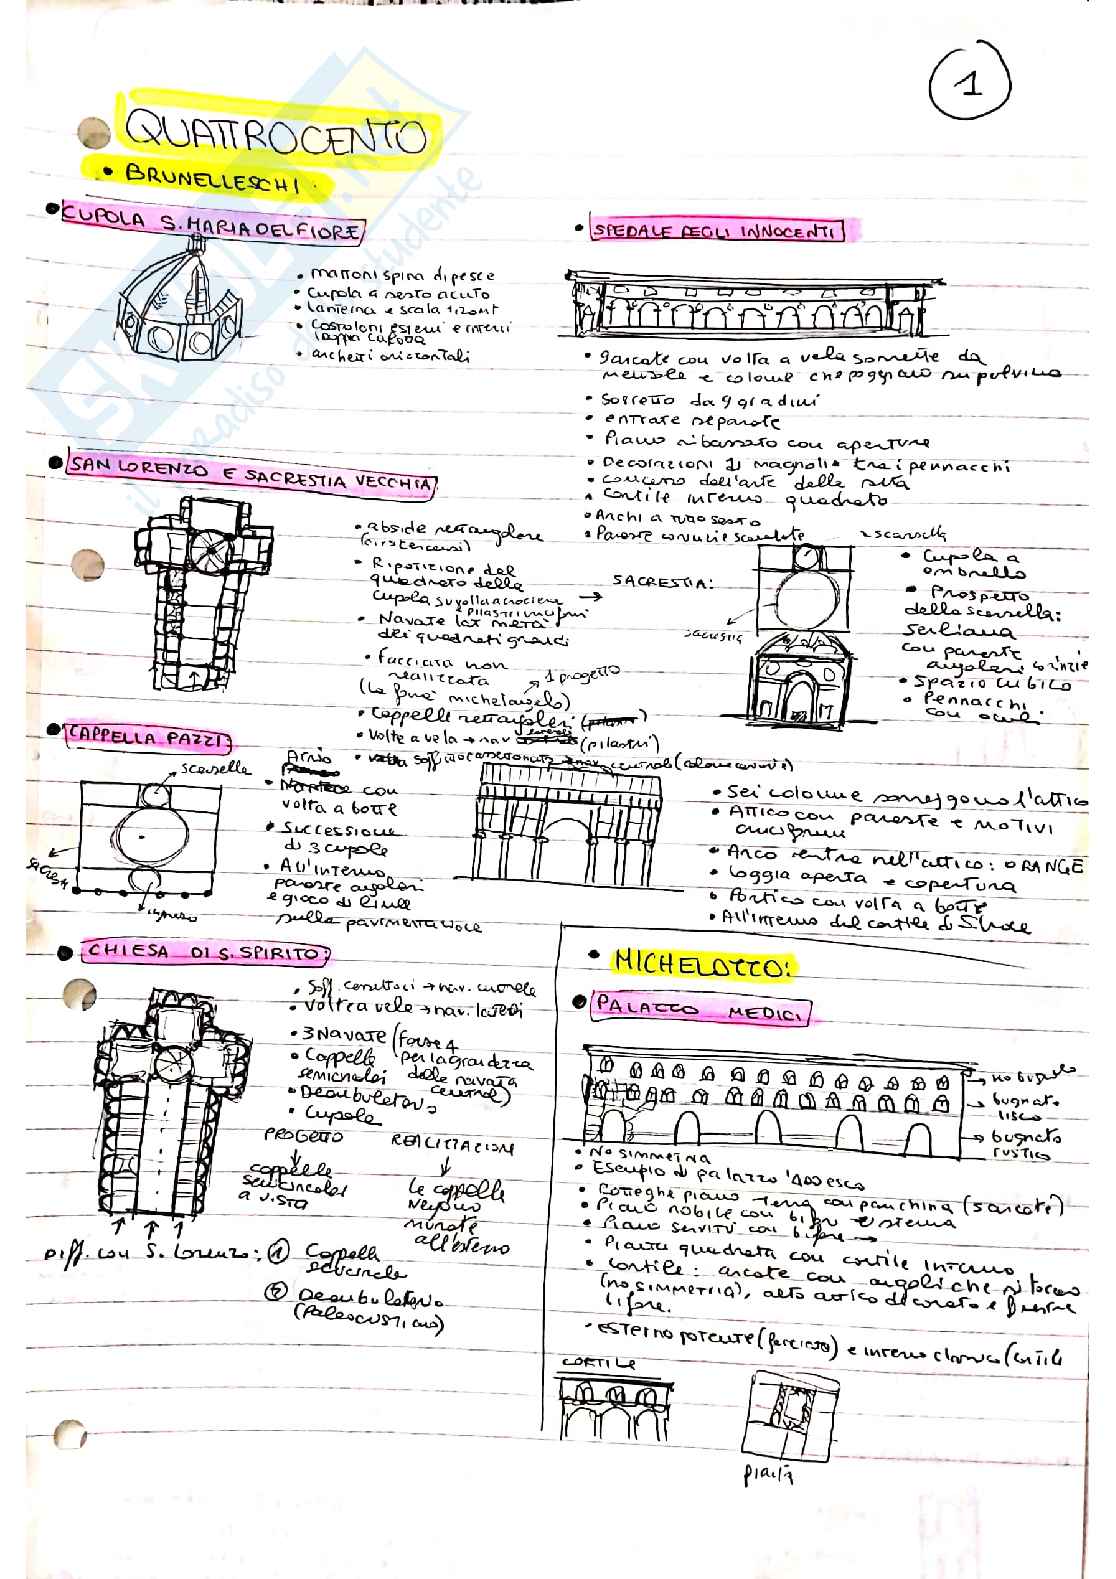 1
QUATTROCENTO
• BRUNELLESCHI
• CUPOLA S. MARIA DEL FIORE
• mattoni spina di pesce
• Cupola a sesto acuto
• lanterna e scala
• Costoloni esterni e interni
cupola
• archetti orizzontali
• SPEDALE DEGLI INNOCENTI
• 9 arcate con volta a vela sorrette da
mensole e colonne che poggiano su pulvino
• Sorretto da 9 gradini
• entrate separate
• Piano ribassato con aperture
• Decorazioni tra i pennacchi
• concorso dell'arte della seta
• Cortile interno quadrato
• Archi a tutto sesto
• Paraste corinzie scanalate
• SAN LORENZO E SACRESTIA VECCHIA
• abside rettangolare
(cistercensi)
• Ripetizione del
quadrato della
cupola sulla crociera
• Navate lat metà
dei quadrati grandi
• facciata non
realizzata
(la farà michelangelo)
1 progetto
• Cappelle rettangolari
• Volte a vela → nav (pilastri)
• soffitto cassettonato → nav centrale
SACRESTIA:
scarsella
• Cupola a
ombrello
• Prospetto
della scarsella:
serliana
con paraste
angolari corinzie
• Spazio cubico
• Pennacchi
con oculi
• CAPPELLA PAZZI:
scarsella
Atrio
• Nartece con
volta a botte
• Successione
di 3 cupole
• All'interno
paraste angolari
e gioco di linee
sulla pavimentazione
ingresso
• Sei colonne sorreggono l'attico
• Attico con paraste e MOTIVI
cruciformi
• Arco rentra nell'attico: ORANGE
• Loggia aperta e copertura
• Portico con volta a botte
• All'interno del cortile di S. Croce
• CHIESA DI S. SPIRITO:
• Soff. cassettoni → nav. centrale
• Volte a vele → nav. laterali
• 3 Navate (forse 4
per la grandezza
della navata
centrale)
• Cappelle
semicircolari
• Deambulatorio
• Cupola
PROGETTO
REALIZZAZIONE
cappelle
semicircolari
a vista
le cappelle
vengono
murate
all'esterno
Diff. con S. Lorenzo: ① Cappelle
② Deambulatorio
(Paleocristiano)
• MICHELOZZO:
• PALAZZO MEDICI
→ no bugnato
→ bugnato
liscio
→ bugnato
rustico
• No simmetria
• Esempio di palazzo '400esco
• Botteghe piano terra con panchina (5 arcate)
• Piano nobile con bifore esterna
• Piano servitù con bifore →
• Pianta quadrata con cortile interno
• Cortile: arcate con angoli che si toccano
(no simmetria), alto attico decorato e finestre
bifore.
• ESTERNO potente (facciata) e interno classico (cortile
CORTILE
pianta
SKUOLA.net
il paradiso dello studente